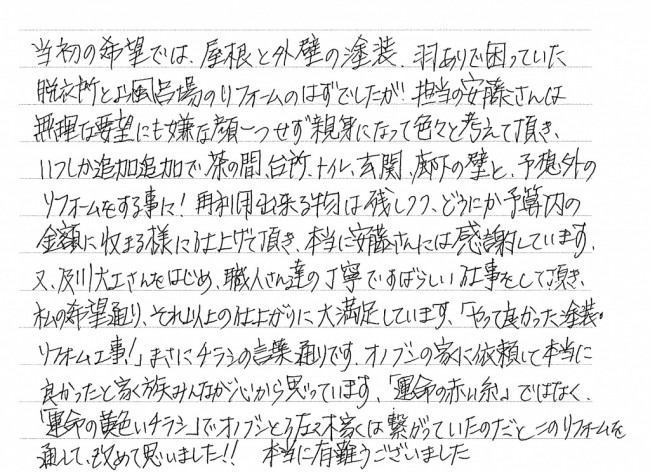 当初の希望では、屋根と外壁の塗装、羽ありで困っていた
脱衣所とお風呂場のリフォームのはずでしたが!担当の安藤さんは
無理な要望にも嫌な顔一つせず親身になって色々と考えて頂き、
いつしか追加追加で、茶の間、台所、トイレ、玄関、廊下の壁と、予想外の
リフォームをする事に!再利用出来る物は残しつつ、どうにか予算内の
金額に収まる様に仕上げて頂き、本当に安藤さんには感謝しています。
又、及川大工さんをはじめ、職人さん達の丁寧ですばらしい仕事をして頂き、
私の希望通り、それ以上の仕上がりに大満足しています。「やって良かった塗装・
リフォーム工事!」まさにチラシの言葉通りです。オノブンの家に依頼して本当に
良かったと家族みんなが心から思っています。「運命の赤い糸」ではなく、
「運命の黄色いチラシ」でオノブンと家は繋がっていたのだとこのリフォームを
通して、改めて思いました!! 本当に有難うございました